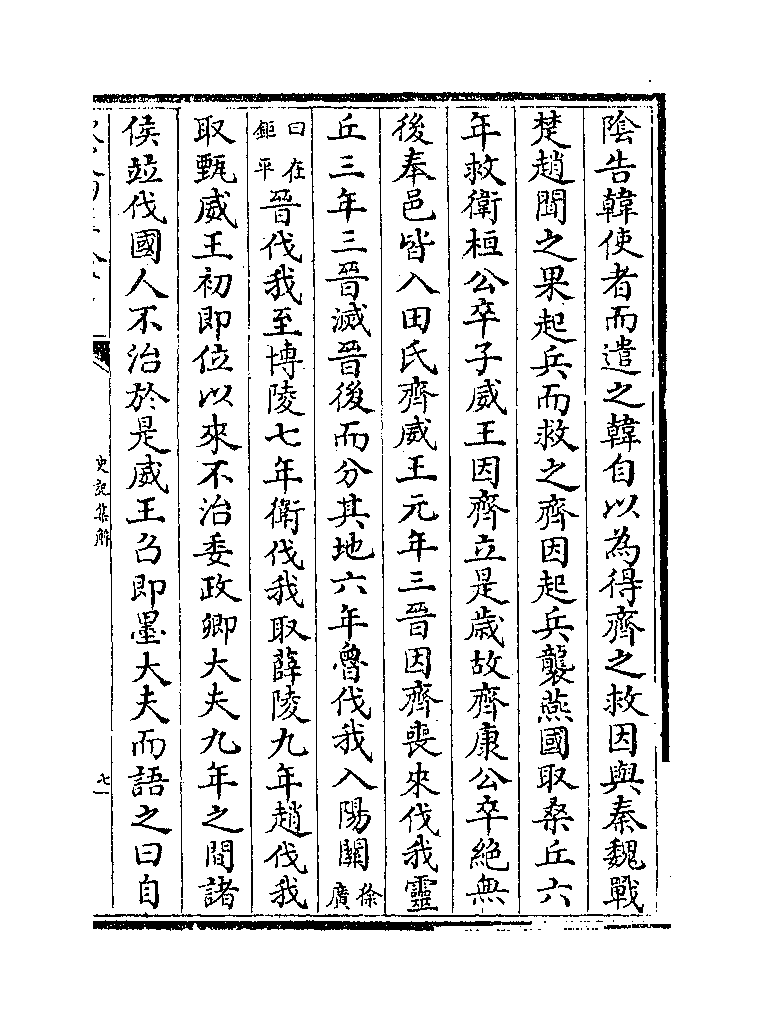 陰告韓使者而遣之韓自以為得齊之救因與秦魏戰
楚趙聞之果起兵而救之齊因起兵襲燕國取桑丘六
年救衛桓公卒子威王因齊立是歲故齊康公卒絕無
後奉邑皆入田氏齊威王元年三晉因齊喪來伐我靈
丘三年三晉滅晉後而分其地六年魯伐我入陽關徐廣
曰在鉅平晉伐我至博陵七年衛伐我取薛陵九年趙伐我
取甄威王初即位以來不治委政卿大夫九年之間諸
侯竝伐國人不治於是威王召即墨大夫而語之曰自
史記集解
七